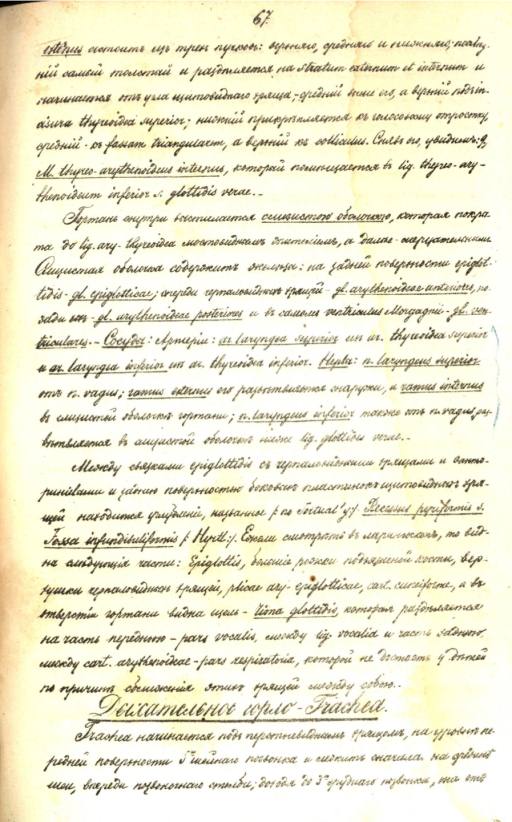 67.
externus состоитъ изъ трехъ пучковъ: верхняго, средняго и нижняго; послѣд-
ній самый толстый и раздѣляется на stratum externum et internum и
начинается отъ угла щитовиднаго хряща; средній выше его, а верхній подъ in-
cisura thyreoidea superior; нижній прикрѣпляется къ голосовому отростку,
средній - къ fossam triangularem, а верхній къ colliculus. Снявъ его, увидимъ:
M. thyreo-arythenoideus internus, который помѣщается въ lig. thyreo-ary-
thenoideum inferior s. glottidis verae.-
Гортань внутри выстилается слизистою оболочкою, которая покры-
та до lig. ary-thyreoidea мостовиднымъ эпителіемъ, а далѣе - мерцательнымъ
Слизистая оболочка содержитъ железы: на задней поверхности epiglot-
tidis - gl. epiglotticae; спереди черпаловидныхъ хрящей - gl. arythenoideae anteriores, по-
зади ихъ - gl. arythenoideae posteriores и въ самомъ ventriculus Morgagnii - gl. ven-
triculares.- Сосуды: Артеріи: ar. laryngea superior изъ ar. thyreoidea superior
и ar. laryngea inferior изъ ar. thyreoidea inferior. Нервы: n. laryngeus superior
отъ n. vagus; ramus externus его развѣтвляется снаружи, а ramus internus
въ слизистой оболочкѣ гортани; n. laryngeus inferior также отъ n. vagus, раз-
вѣтвляется въ слизистой оболочкѣ ниже lig. glottidis verae.-
Между связками epiglottidis съ черпаловидными хрящами и Санто-
риніевыми и заднею поверхностью боковыхъ пластинокъ щитовидныхъ хря-
щей находится углубленіе, названное /: по Tortual'у :/ Recessus pyriformis s.
Fossa infundibuliformis /: Hyrtl :/. Если смотрѣть въ ларингоскопъ, то вид-
на слѣдующія части: Epiglottis, большіе рожки подъязычной кости, вер-
хушки черпаловидныхъ хрящей, plicae ary-epiglotticae, cart. cuneiforme, и въ
отверстіи гортани видна щель - rima glottidis, которая раздѣляется
на часть переднюю - pars vocalis, между lig. vocalia и часть заднюю
между cart. arythenoideae - pars respiratoria, которой не достаетъ у дѣтей
по причинѣ сближенія этихъ хрящей между собою.-
Дыхательное горло - Trachea.
Trachea начинается подъ перстневиднымъ хрящомъ, на уровнѣ пе-
редней поверхности 5го шейнаго позвонка и лежитъ сначала на срединѣ
шеи, впереди позвоночнаго столба; дойдя до 3го груднаго позвонка, она отъ